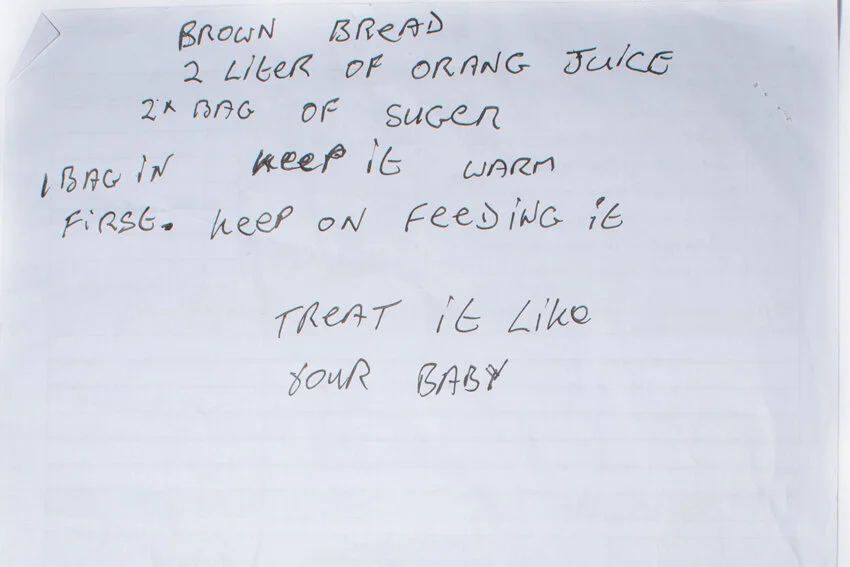 BROWN BREAD
2 LITER OF ORANG JUICE
2x BAG OF SUGER
1 BAG IN KEEP IT WARM
FIRST. KEEP ON FEEDING IT
TREAT IT LIKE
YOUR BABY